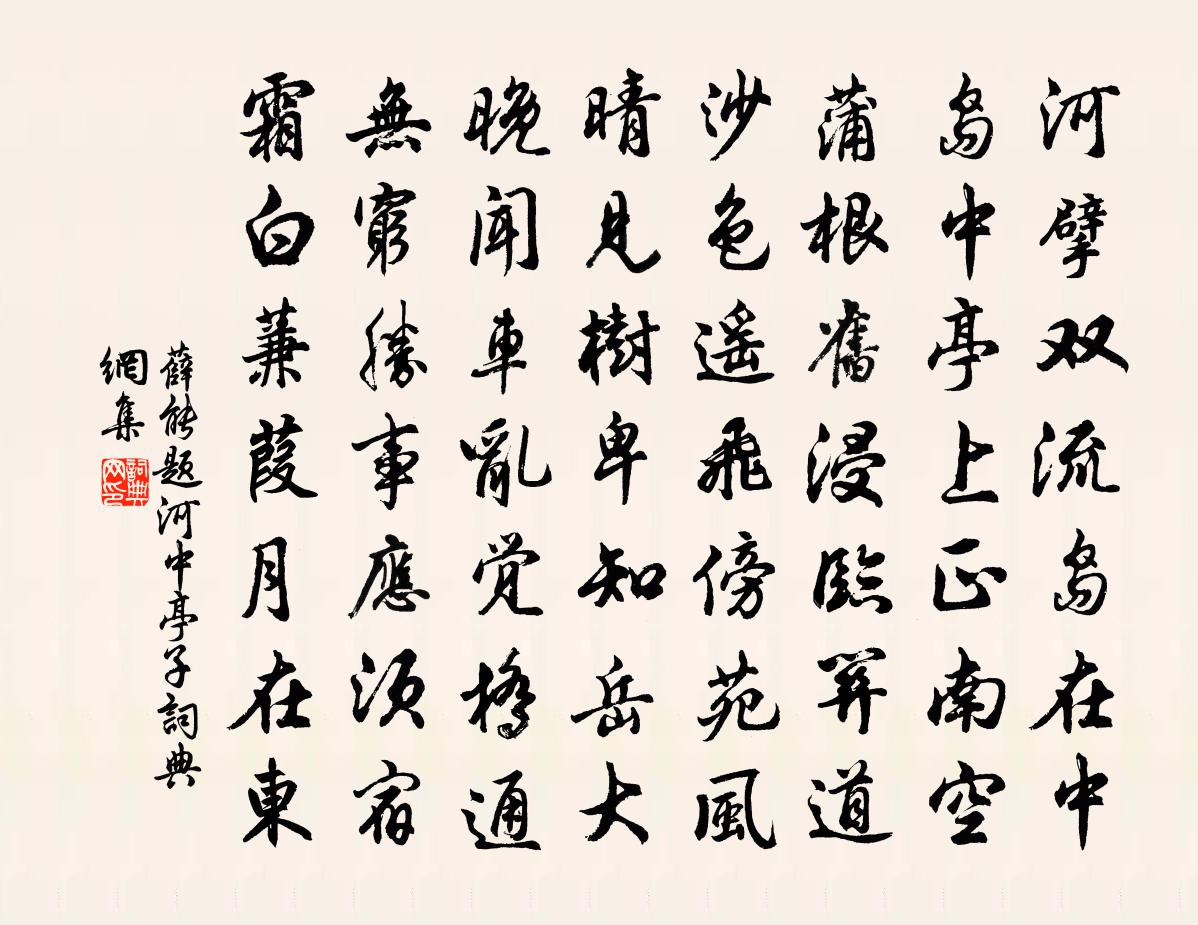 河擘双流島在中
島中亭上正南空
蒲根舊浸臨關道
沙色遥飛傍苑風
晴見樹卑知岳大
晚聞車亂覺橋通
無窮勝事應須宿
霜白蒹葭月在東
薛能題河中亭子詞典
網集
詞典
网印